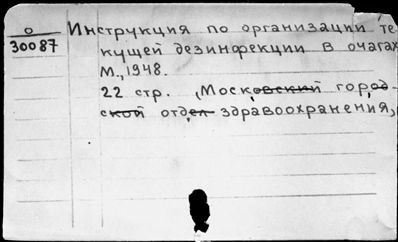 О
30087
Инструкция по организации те
кущей дезинфекции в очагах
М., 1948.
22 стр. (Московский город-
ской отдел здравоохранения,